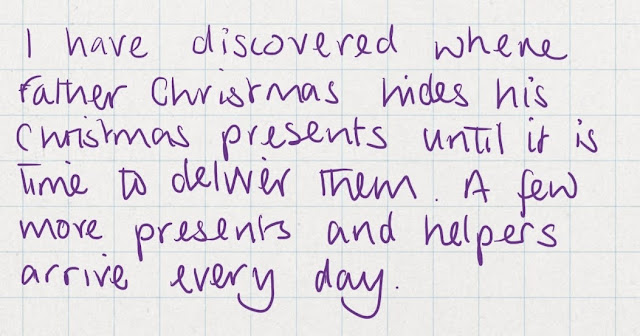 I have discovered where
Father Christmas hides his
Christmas presents until it is
time to deliver them. A few
more presents and helpers
arrive every day.